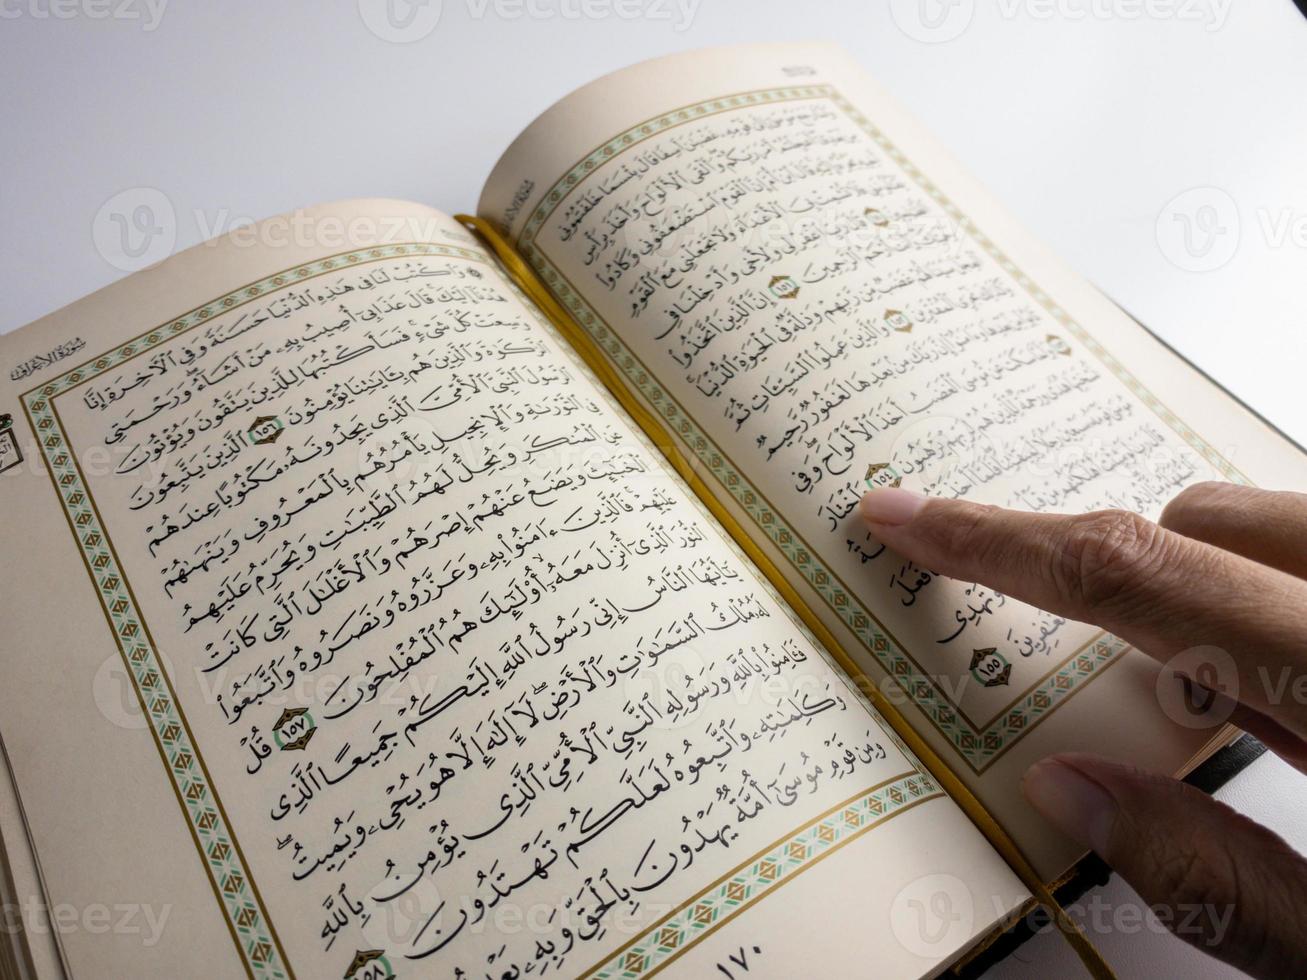 غَضْبَٰنَ أَسِفًا قَالَ بِئْسَمَا خَلَفْتُمُونِى
أَمْرَ رَبِّكُمْ وَأَلْقَى ٱلْأَلْوَاحَ وَأَخَذَ بِرَأْسِ
إِنَّ ٱلْقَوْمَ ٱسْتَضْعَفُونِى وَكَادُوا۟
ٱلْأَعْدَآءَ وَلَا تَجْعَلْنِى مَعَ ٱلْقَوْمِ
ٱغْفِرْ لِى وَلِأَخِى وَأَدْخِلْنَا فِى
ٱلرَّٰحِمِينَ ١٥١ إِنَّ ٱلَّذِينَ ٱتَّخَذُوا۟
غَضَبٌ مِّن رَّبِّهِمْ وَذِلَّةٌ فِى ٱلْحَيَوٰةِ ٱلدُّنْيَا
ٱلْمُفْتَرِينَ ١٥٢ وَٱلَّذِينَ عَمِلُوا۟ ٱلسَّيِّـَٔاتِ ثُمَّ
إِنَّ رَبَّكَ مِنۢ بَعْدِهَا لَغَفُورٌ رَّحِيمٌ
سَكَتَ عَن مُّوسَى ٱلْغَضَبُ أَخَذَ ٱلْأَلْوَاحَ وَفِى
وَرَحْمَةٌ لِّلَّذِينَ هُمْ لِرَبِّهِمْ يَرْهَبُونَ ١٥٤ وَٱخْتَارَ
١٥٥
سُورَةُ الأَعْرَافِ
وَٱكْتُبْ لَنَا فِى هَٰذِهِ ٱلدُّنْيَا حَسَنَةً وَفِى ٱلْءَاخِرَةِ إِنَّا
هُدْنَآ إِلَيْكَ قَالَ عَذَابِىٓ أُصِيبُ بِهِۦ مَنْ أَشَآءُ وَرَحْمَتِى
وَسِعَتْ كُلَّ شَىْءٍ فَسَأَكْتُبُهَا لِلَّذِينَ يَتَّقُونَ وَيُؤْتُونَ
ٱلزَّكَوٰةَ وَٱلَّذِينَ هُم بِـَٔايَٰتِنَا يُؤْمِنُونَ ١٥٦ ٱلَّذِينَ يَتَّبِعُونَ
ٱلرَّسُولَ ٱلنَّبِىَّ ٱلْأُمِّىَّ ٱلَّذِى يَجِدُونَهُۥ مَكْتُوبًا عِندَهُمْ
فِى ٱلتَّوْرَىٰةِ وَٱلْإِنجِيلِ يَأْمُرُهُم بِٱلْمَعْرُوفِ وَيَنْهَىٰهُمْ
عَنِ ٱلْمُنكَرِ وَيُحِلُّ لَهُمُ ٱلطَّيِّبَٰتِ وَيُحَرِّمُ عَلَيْهِمُ
ٱلْخَبَٰٓئِثَ وَيَضَعُ عَنْهُمْ إِصْرَهُمْ وَٱلْأَغْلَٰلَ ٱلَّتِى كَانَتْ
عَلَيْهِمْ فَٱلَّذِينَ ءَامَنُوا۟ بِهِۦ وَعَزَّرُوهُ وَنَصَرُوهُ وَٱتَّبَعُوا۟
ٱلنُّورَ ٱلَّذِىٓ أُنزِلَ مَعَهُۥٓ أُو۟لَٰٓئِكَ هُمُ ٱلْمُفْلِحُونَ ١٥٧ قُلْ
يَٰٓأَيُّهَا ٱلنَّاسُ إِنِّى رَسُولُ ٱللَّهِ إِلَيْكُمْ جَمِيعًا ٱلَّذِى
لَهُۥ مُلْكُ ٱلسَّمَٰوَٰتِ وَٱلْأَرْضِ لَآ إِلَٰهَ إِلَّا هُوَ يُحْىِۦ وَيُمِيتُ
فَـَٔامِنُوا۟ بِٱللَّهِ وَرَسُولِهِ ٱلنَّبِىِّ ٱلْأُمِّىِّ ٱلَّذِى يُؤْمِنُ بِٱللَّهِ
وَكَلِمَٰتِهِۦ وَٱتَّبِعُوهُ لَعَلَّكُمْ تَهْتَدُونَ ١٥٨
وَمِن قَوْمِ مُوسَىٰٓ أُمَّةٌ يَهْدُونَ بِٱلْحَقِّ وَبِهِۦ
١٧٠
Vecteezy